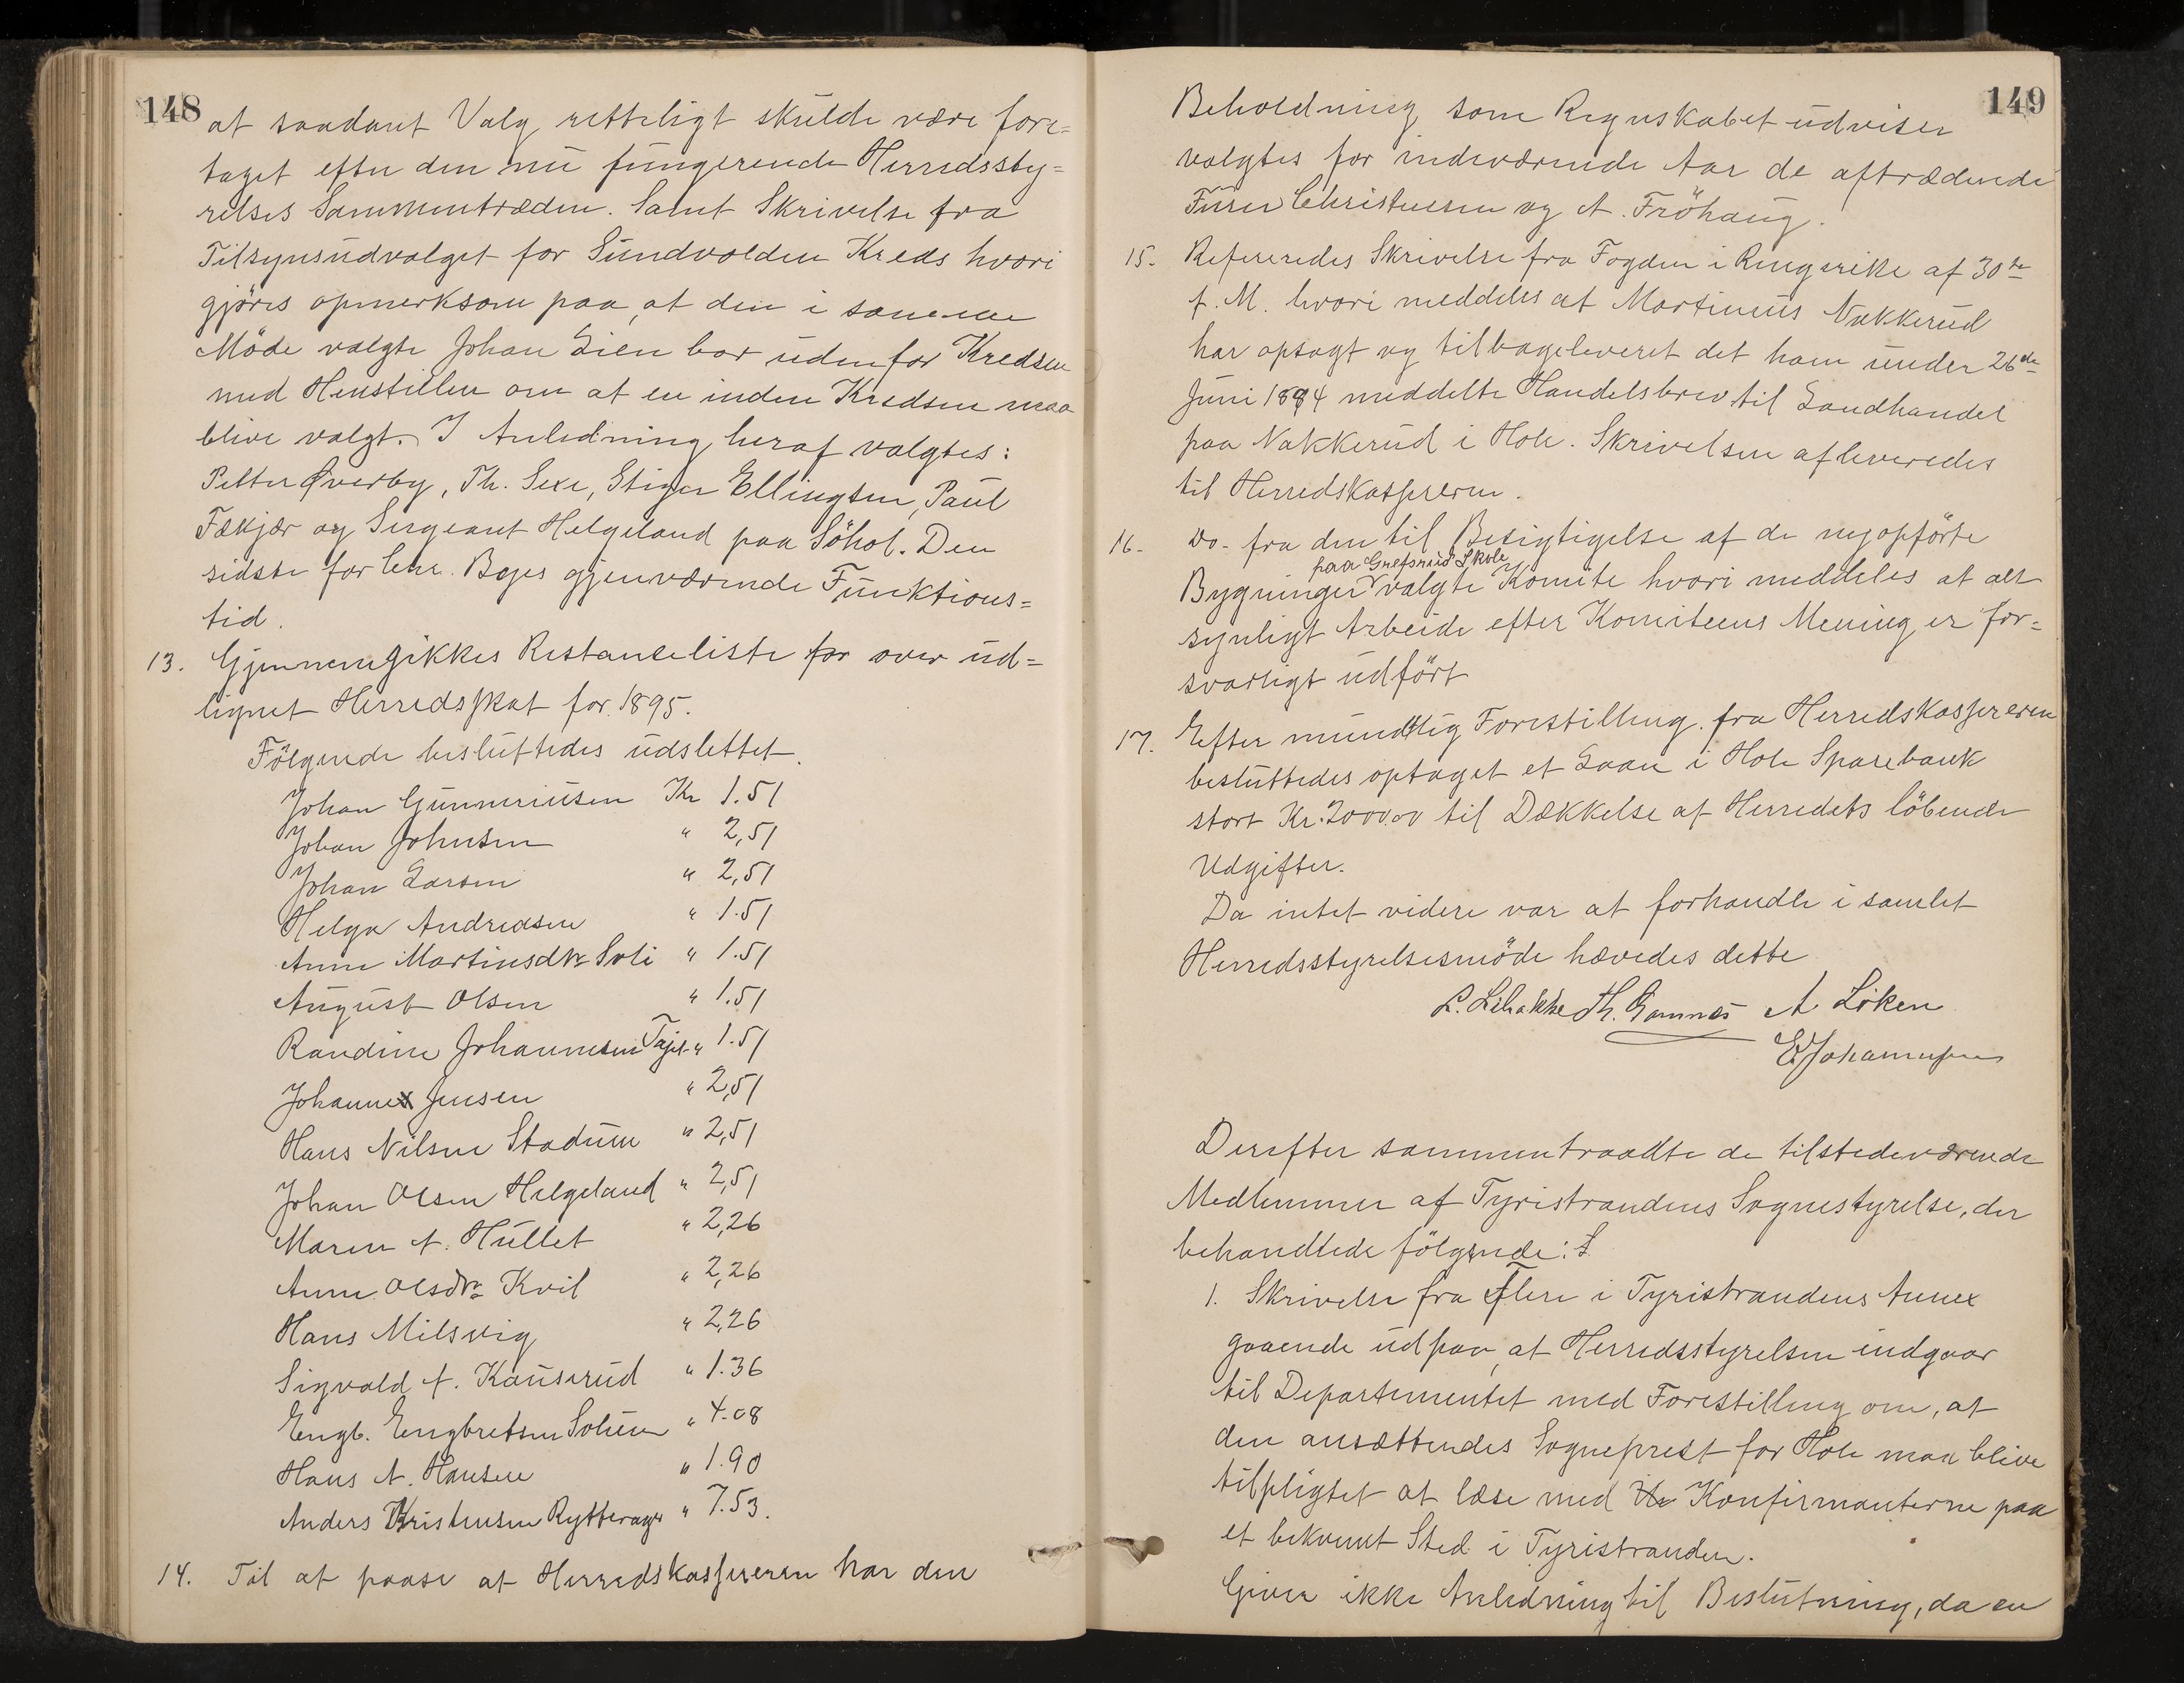 148
at saadant Valg retteligt skulde være fore=
taget efter den nu fungerende Herredssty=
relses Sammentræden. Samt Skrivelse fra
Tilsynsudvalget for Sundvolden Kreds hvori
gjöres opmerksom paa, at den i samme
Möde valgte Johan Lien bor udenfor Kredsen
med Henstillen om at en inden Kredsen maa
blive valgt. I Anledning heraf valgtes:
Petter Øverby, Th. Sexe, Stiger Ellingsen, Paul
Fækjær og Sergeant Helgeland paa Söhol. Den
sidste for Chr. Bøjes gjenværende Funktions=
tid.
13. Gjennemgikkes Restanseliste for over ud=
lignet Herredsskat for 1895.
Fölgende besluttedes udslettet.
Johan Gunneriusen Kr 1.51
Johan Johnsen " 2,51
Johan Larsen " 2,51
Helga Andreasen " 1.51
Anne Martinsdtr Soli " 1.51
August Olsen " 1.51
Randine Johannesen Tajet " 1.51
Johannes Jensen " 2,51
Hans Nilsen Stadum " 2,51
Johan Olsen Helgeland " 2,51
Maren A. Hullet " 2,26
Anne Olsdtr Kvil " 2,26
Hans Milsvig " 2,26
Sigvald A. Kauserud " 1.36
Engb. Engbretsen Solum " 4.08
Hans A. Hansen " 1.90
Anders Kristensen Rytterager " 7.53.
14. Til at paase at Herredskassereren har den
149
Beholdning som Regnskabet udviser
valgtes for indeværende Aar de aftrædende
Furer Christensen og A. Fröhaug.
15. Refereredes Skrivelse fra Fogden i Ringerike af 30te
f. M. hvori meddeles at Martinius Nakkerud
har opsagt og tilbageleveret det ham under 26de
Juni 1894 meddelte Handelsbrev til Landhandel
paa Nakkerud i Hole. Skrivelsen afleveredes
til Herredskassereren.
16. Do. fra den til Besigtigelse af de nyopförte
paa Grefsrud Skole
Bygninger valgte Komite hvori meddeles at alt
synligt Arbeide efter Komiteens Mening er for=
svarligt udfört
17. Efter mundtlig Forestilling fra Herredskassereren
besluttedes optaget et Laan i Hole Sparebank
stort Kr. 2000.00 til Dækkelse af Herredets löbende
Udgifter.
Da intet videre var at forhandle i samlet
Herredsstyrelsesmöde hævedes dette
Th. Gomnæs A Löken
E Johannessen
Derefter sammentraadte de tilstedeværende
Medlemmer af Tyristrandens Sognestyrelse, der
behandlede fölgende:
1. Skrivelse fra flere i Tyristrandens Annex
gaaende ud paa, at Herredsstyrelsen indgaar
til Departementet med Forestilling om, at
den ansættendes Sogneprest for Hole maa blive
tilpligtet at læse med Konfirmanterne paa
et bekvemt Sted i Tyristranden.
Giver ikke Anledning til Beslutning, da en